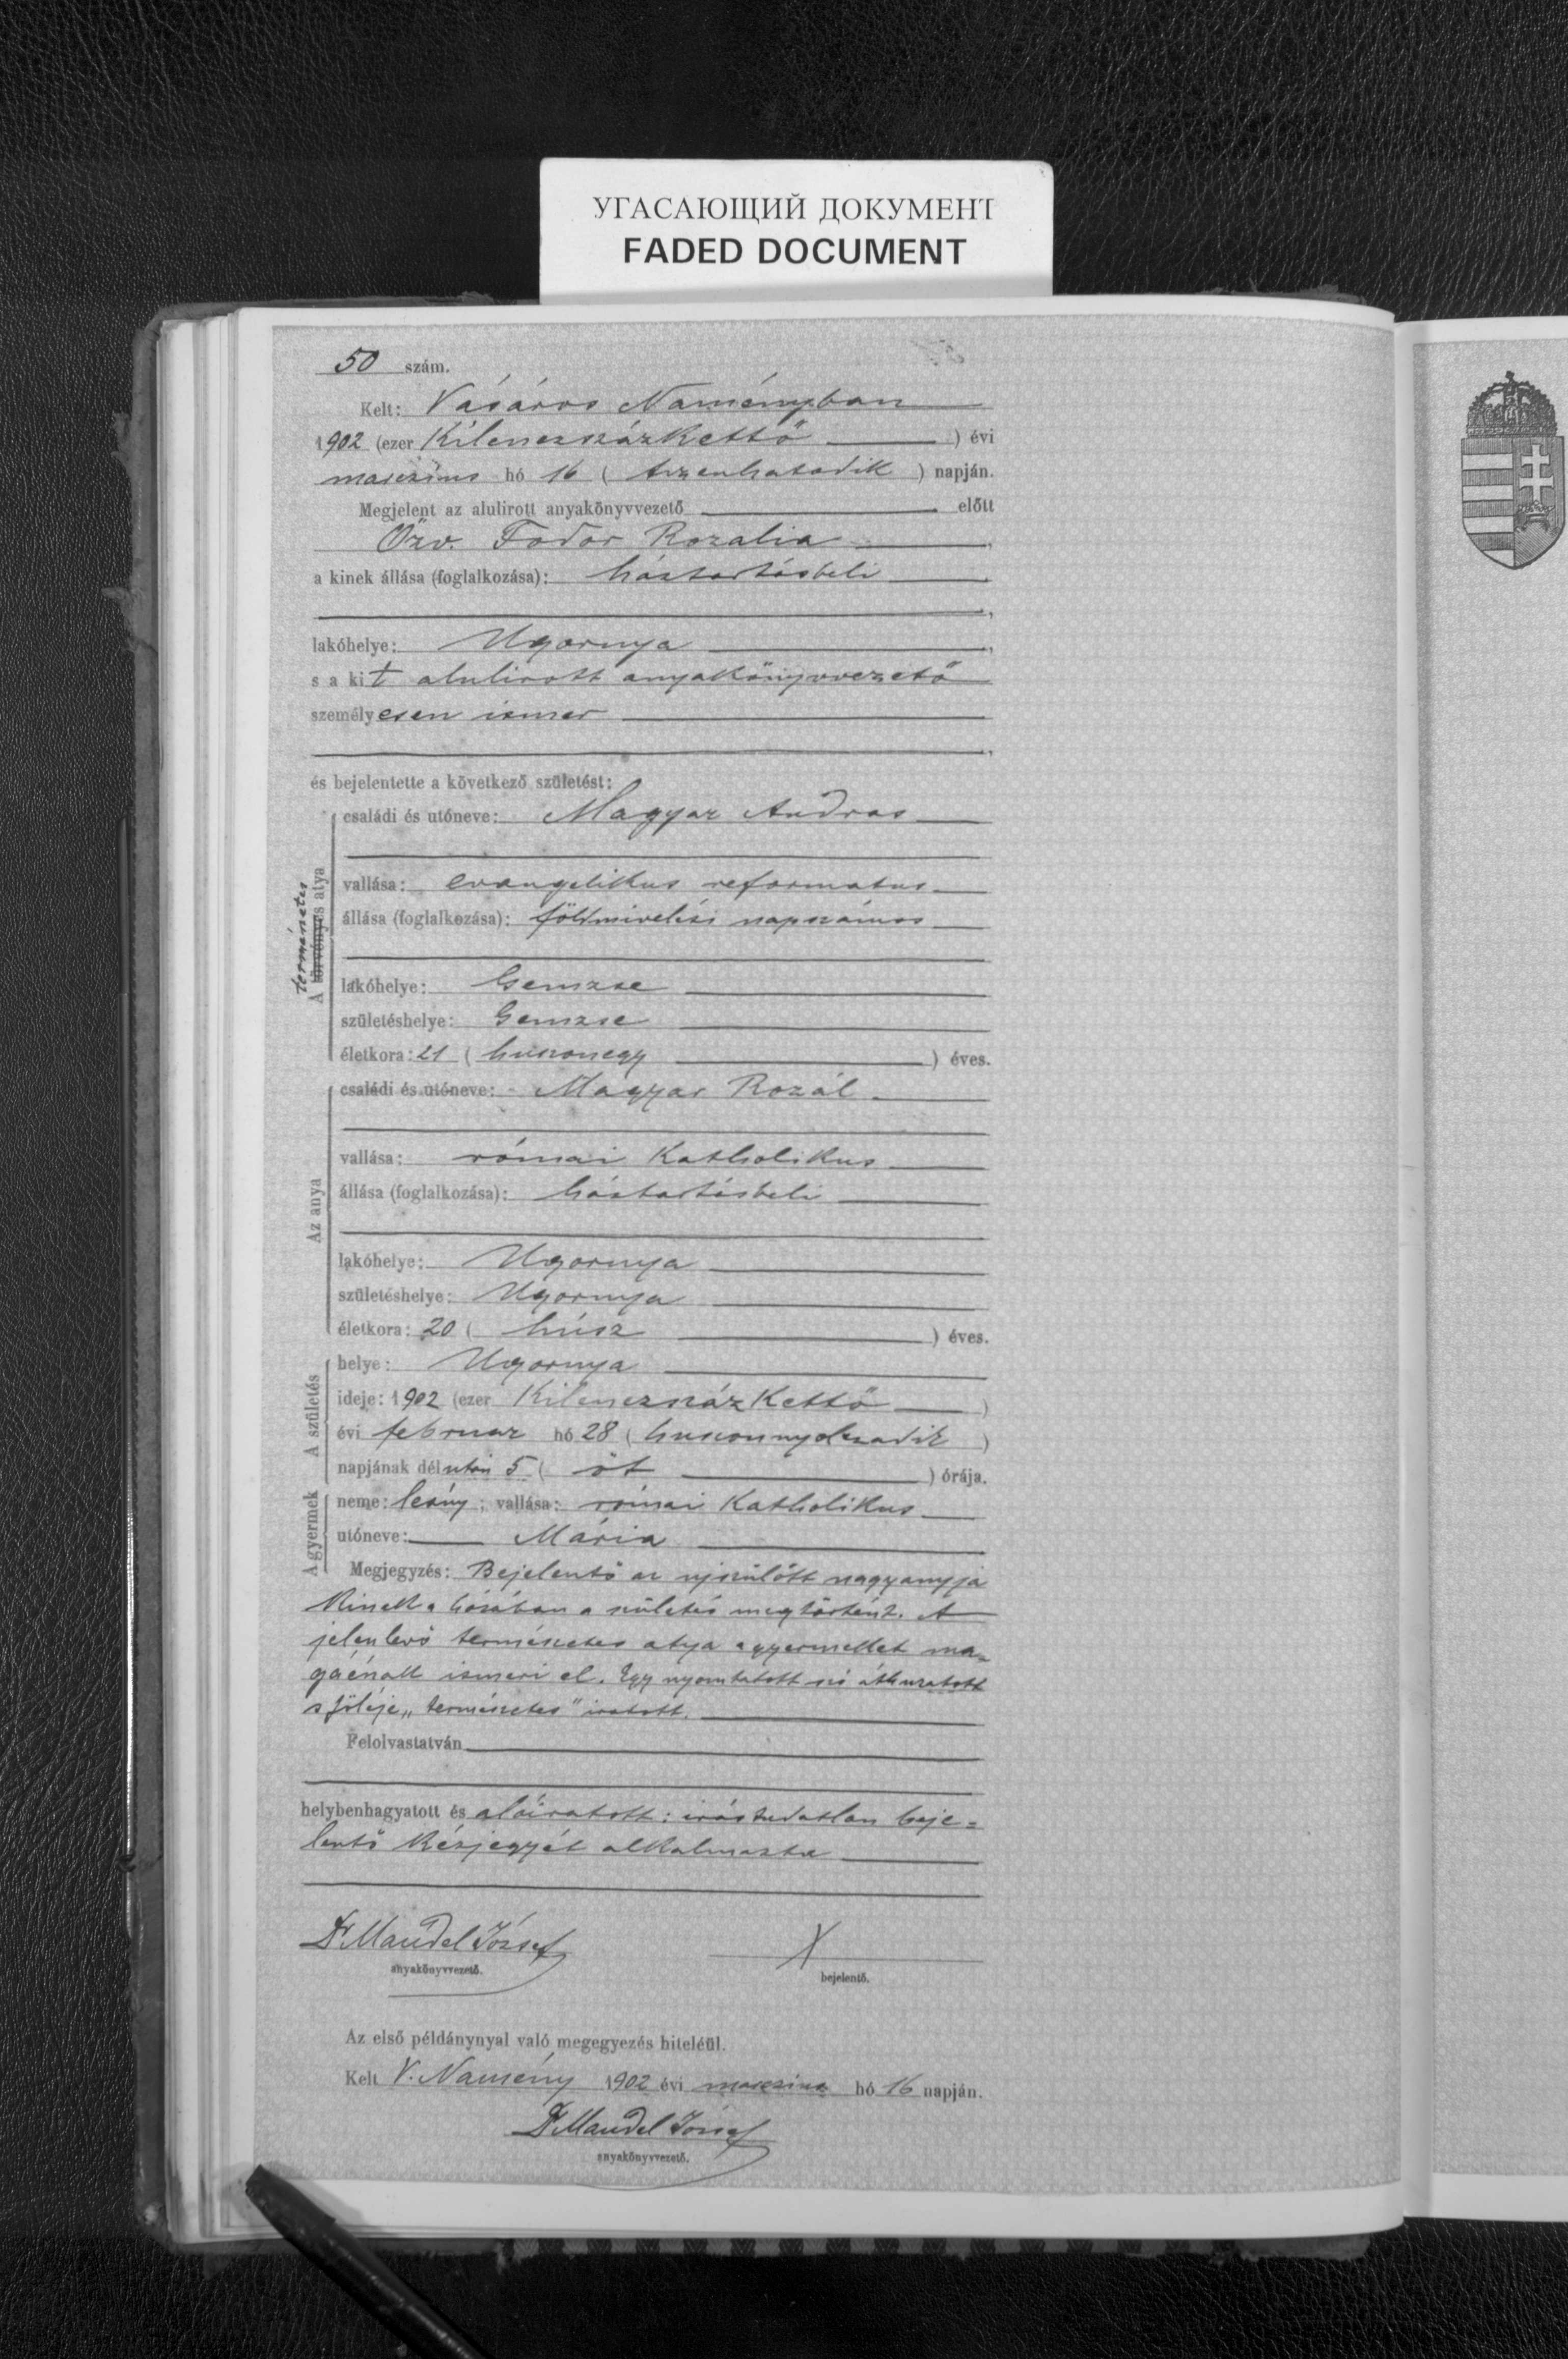 УГАСАЮЩИЙ ДОКУМЕНТ
FADED DOCUMENT
50 szám.
Kelt: Vásáros Naményban
1902 (ezer Kilenczszázkettő ) évi
marczius hó 16 ( tizenhatodik ) napján.
Megjelent az alulirott anyakönyvvezető előtt
Özv. Fodor Rozalia
a kinek állása (foglalkozása): háztartásbeli
lakóhelye: Ugornya
s a kit alulirott anyakönyvvezető
személyesen ismer
és bejelentette a következő születést:
A törvényes atya
természetes
családi és utóneve: Magyar Andras
vallása: evangelikus reformatus
állása (foglalkozása): földmivelési napszámos
lakóhelye: Gemzse
születéshelye: Gemzse
életkora: 21 ( huszonegy ) éves.
Az anya
családi és utóneve: Magyar Rozál
vallása: római Katholikus
állása (foglalkozása): háztartásbeli
lakóhelye: Ugornya
születéshelye: Ugornya
életkora: 20 ( húsz ) éves.
A születés
helye: Ugornya
ideje: 1902 (ezer Kilenczszázkettő )
évi februar hó 28 ( huszonnyolczadik )
napjának délután 5 ( öt ) órája.
A gyermek
neme: leány; vallása: római Katholikus
utóneve: Mária
Megjegyzés: Bejelentő az ujszülött nagyanyja
Kinek a házában a születés megtörtént. A
jelenlevő természetes atya a gyermeket ma=
gáénak ismeri el. Egy nyomtatott szó áthuzatott
s föléje „természetes" iratott.
Felolvastatván
helybenhagyatott és aláiratott; irástudatlan beje=
lentő Kézjegyét alkalmazta
Dr Mandel József
anyakönyvvezető.
X
bejelentő.
Az első példánynyal való megegyezés hiteléül.
Kelt V. Namény 1902 évi marczius hó 16 napján.
Dr Mandel József
anyakönyvvezető.